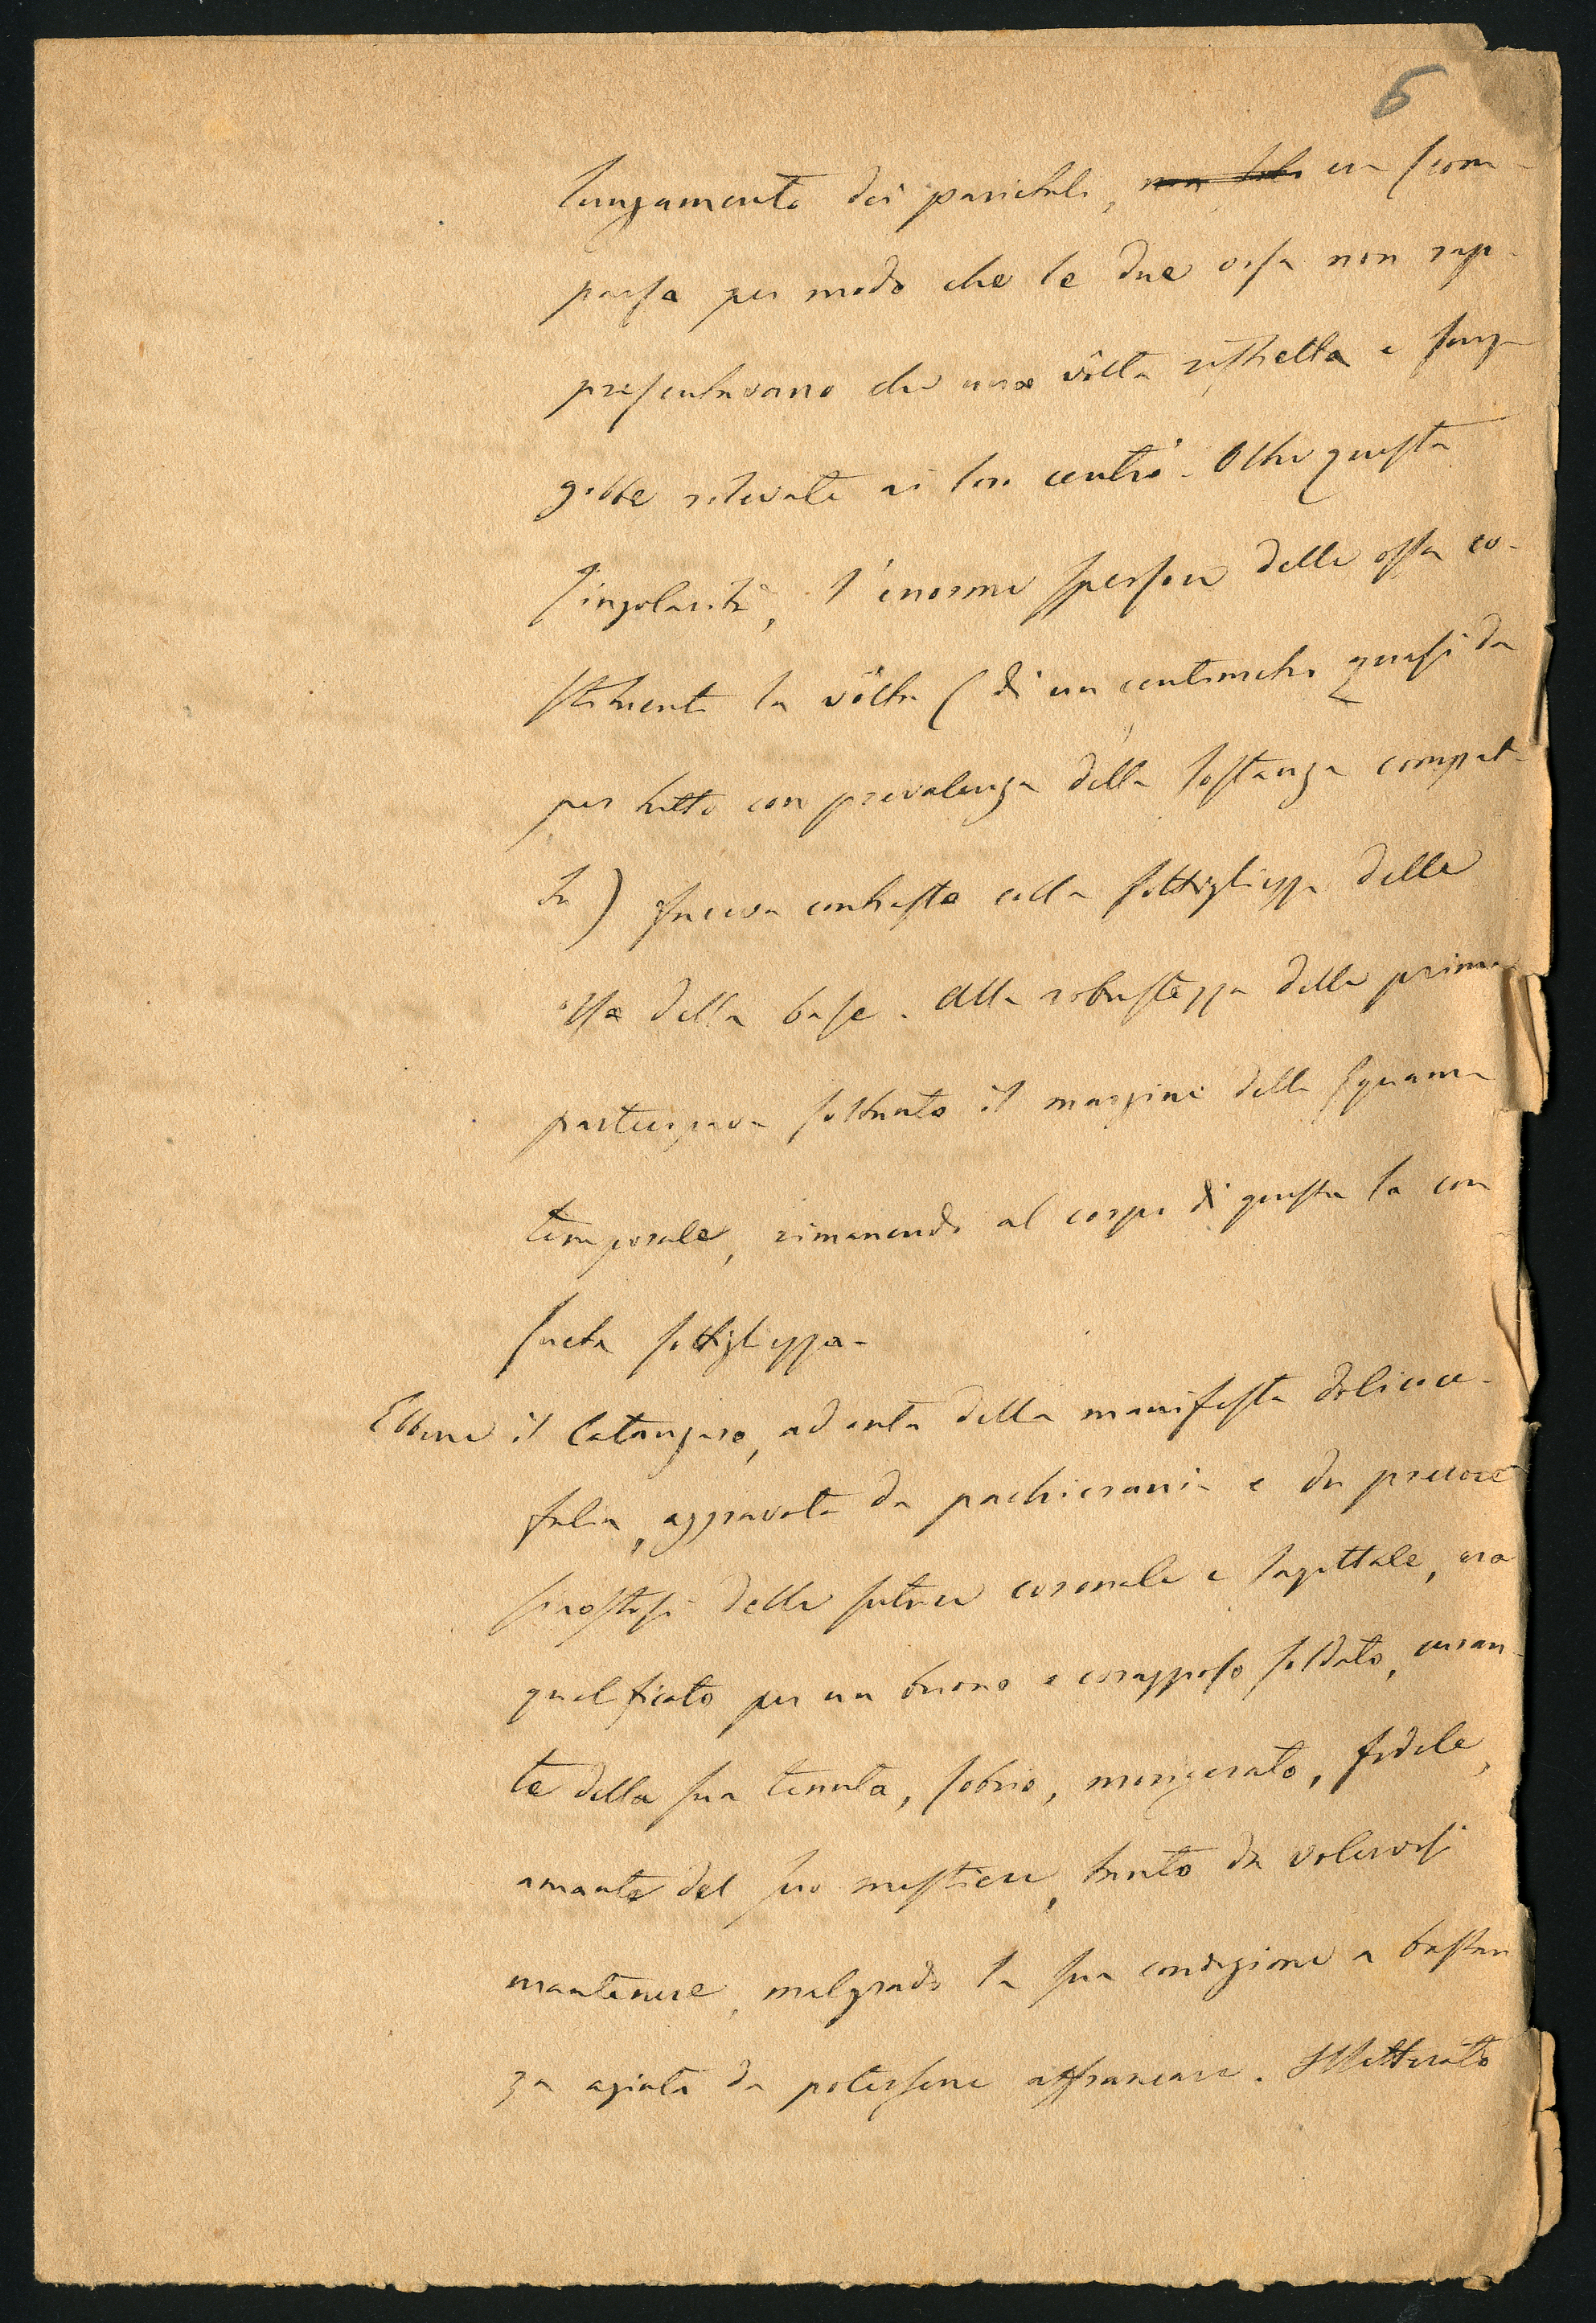 6
lungamento dei parietali, era scom-
parsa per modo che le due ossa non rap-
presentavano che una vôlta ristretta e senza
gobbe rilevate ai loro centri. Oltre questa
singolarità, l'enorme spessore delle ossa co-
stituenti la vôlta (di un centimetro quasi da
per tutto con prevalenza della sostanza compat-
ta) faceva contrasto colla sottigliezza delle
ossa della base. Alla robustezza delle prime
partecipava soltanto il margine della squama
temporale, rimanendo al corpo di questa la con
sueta sottigliezza.
Ebbene il Catanzaro, ad onta della manifesta dolicoce-
falia, aggravata da pachicrania e da precoce
sinostosi delle suture coronale e sagittale, era
qualificato per un buono e coraggioso soldato, curan-
te della sua tenuta, sobrio, morigerato, fedele,
amante del suo mestiere, tanto da volervisi
mantenere, malgrado la sua condizione a bastan
za agiata da potersene affrancare. Illetterato